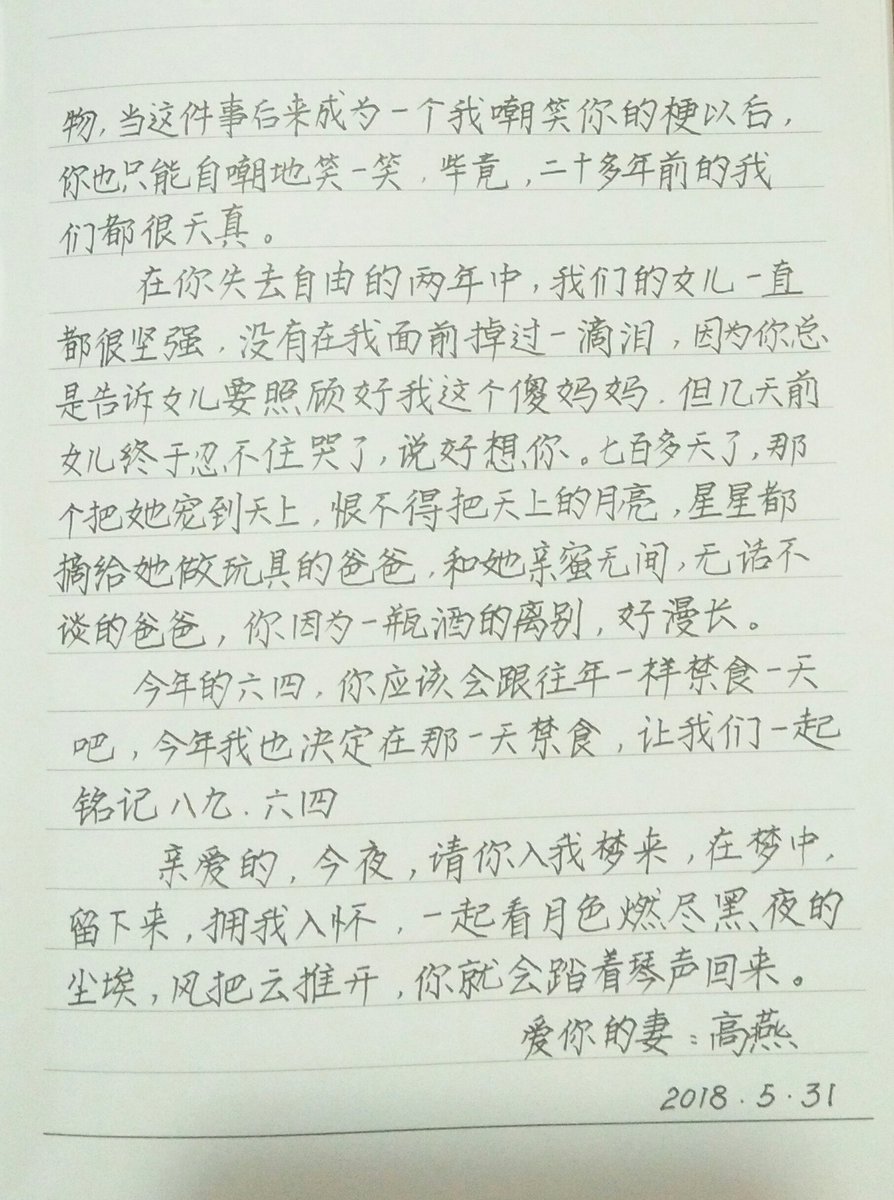 物，当这件事后来成为一个我嘲笑你的梗以后，
你也只能自嘲地笑一笑，毕竟，二十多年前的我
们都很天真。
在你失去自由的两年中，我们的女儿一直
都很坚强，没有在我面前掉过一滴泪，因为你总
是告诉女儿要照顾好我这个傻妈妈，但几天前
女儿终于忍不住哭了，说好想你。七百多天了，那
个把她宠到天上，恨不得把天上的月亮，星星都
摘给她做玩具的爸爸，和她亲蜜无间，无话不
谈的爸爸，你因为一瓶酒的离别，好漫长。
今年的六四，你应该会跟往年一样禁食一天
吧，今年我也决定在那一天禁食，让我们一起
铭记八九．六四
亲爱的，今夜，请你入我梦来，在梦中，
留下来，拥我入怀，一起看月色燃尽黑夜的
尘埃，风把云推开，你就会踏着琴声回来。
爱你的妻：高燕
2018．5．31